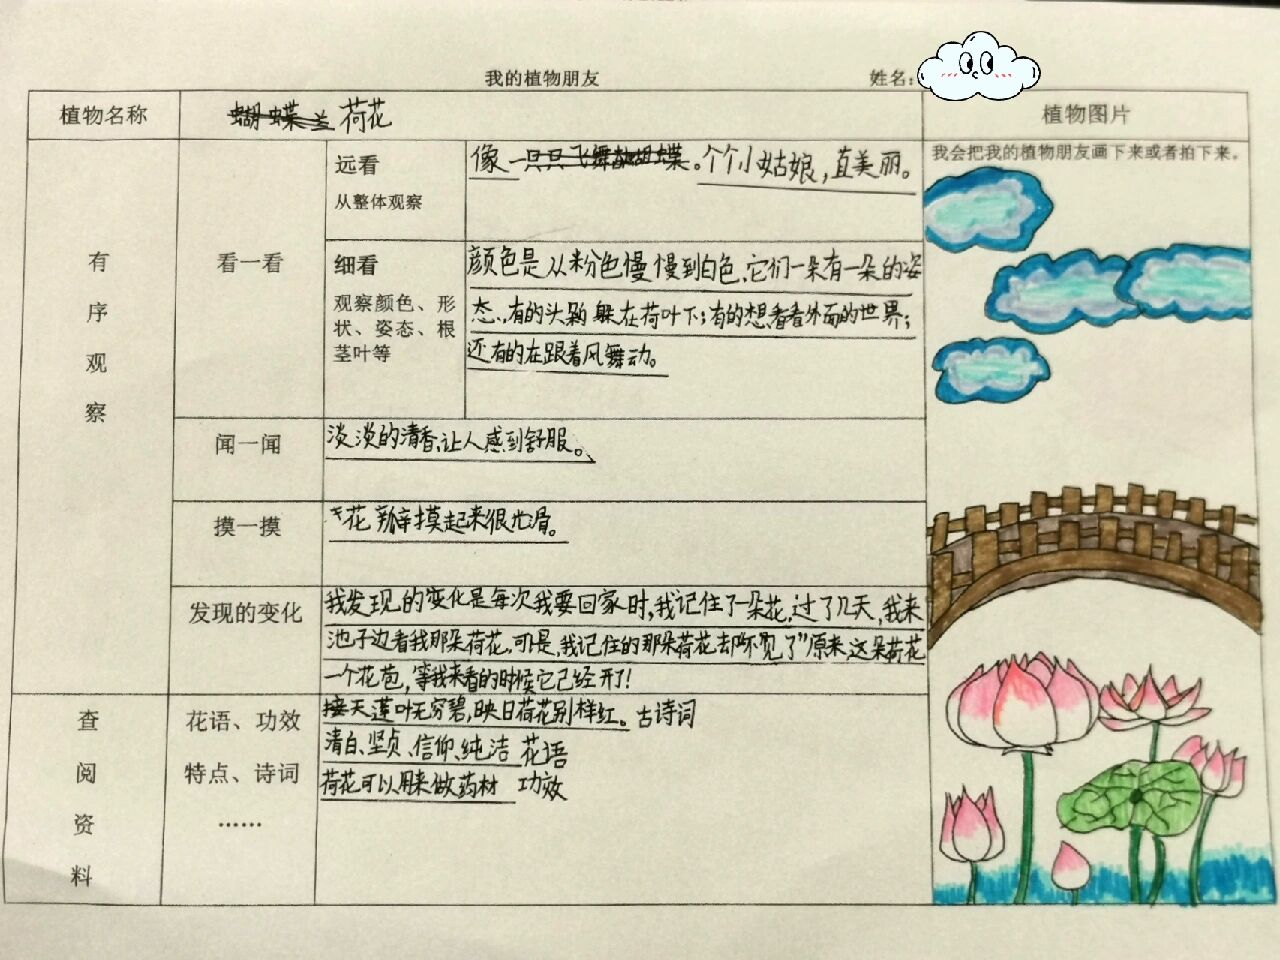 我的植物朋友
姓名:
植物名称
蝴蝶兰荷花
植物图片
我会把我的植物朋友画下来或者拍下来。
有序观察
看一看
远看
从整体观察
像一只只飞舞的蝴蝶。个个小姑娘,直美丽。
细看
观察颜色、形
状、姿态、根
茎叶等
颜色是从粉色慢慢到白色,它们一朵有一朵的姿
态,有的头躲在荷叶下;有的想看看外面的世界;
还有的在跟着风舞动。
闻一闻
淡淡的清香,让人感到舒服。
摸一摸
花瓣摸起来很光滑。
发现的变化
我发现的变化是每次我要回家时,我记住了一朵花,过了几天,我来
池子边看我那朵荷花,可是,我记住的那朵荷花却“不见了”原来,这朵荷花
一个花苞,等我来看的时候它已经开了!
查阅资料
花语、功效
特点、诗词
……
接天莲叶无穷碧,映日荷花别样红。古诗词
清白、坚贞、信仰、纯洁 花语
荷花可以用来做药材 功效